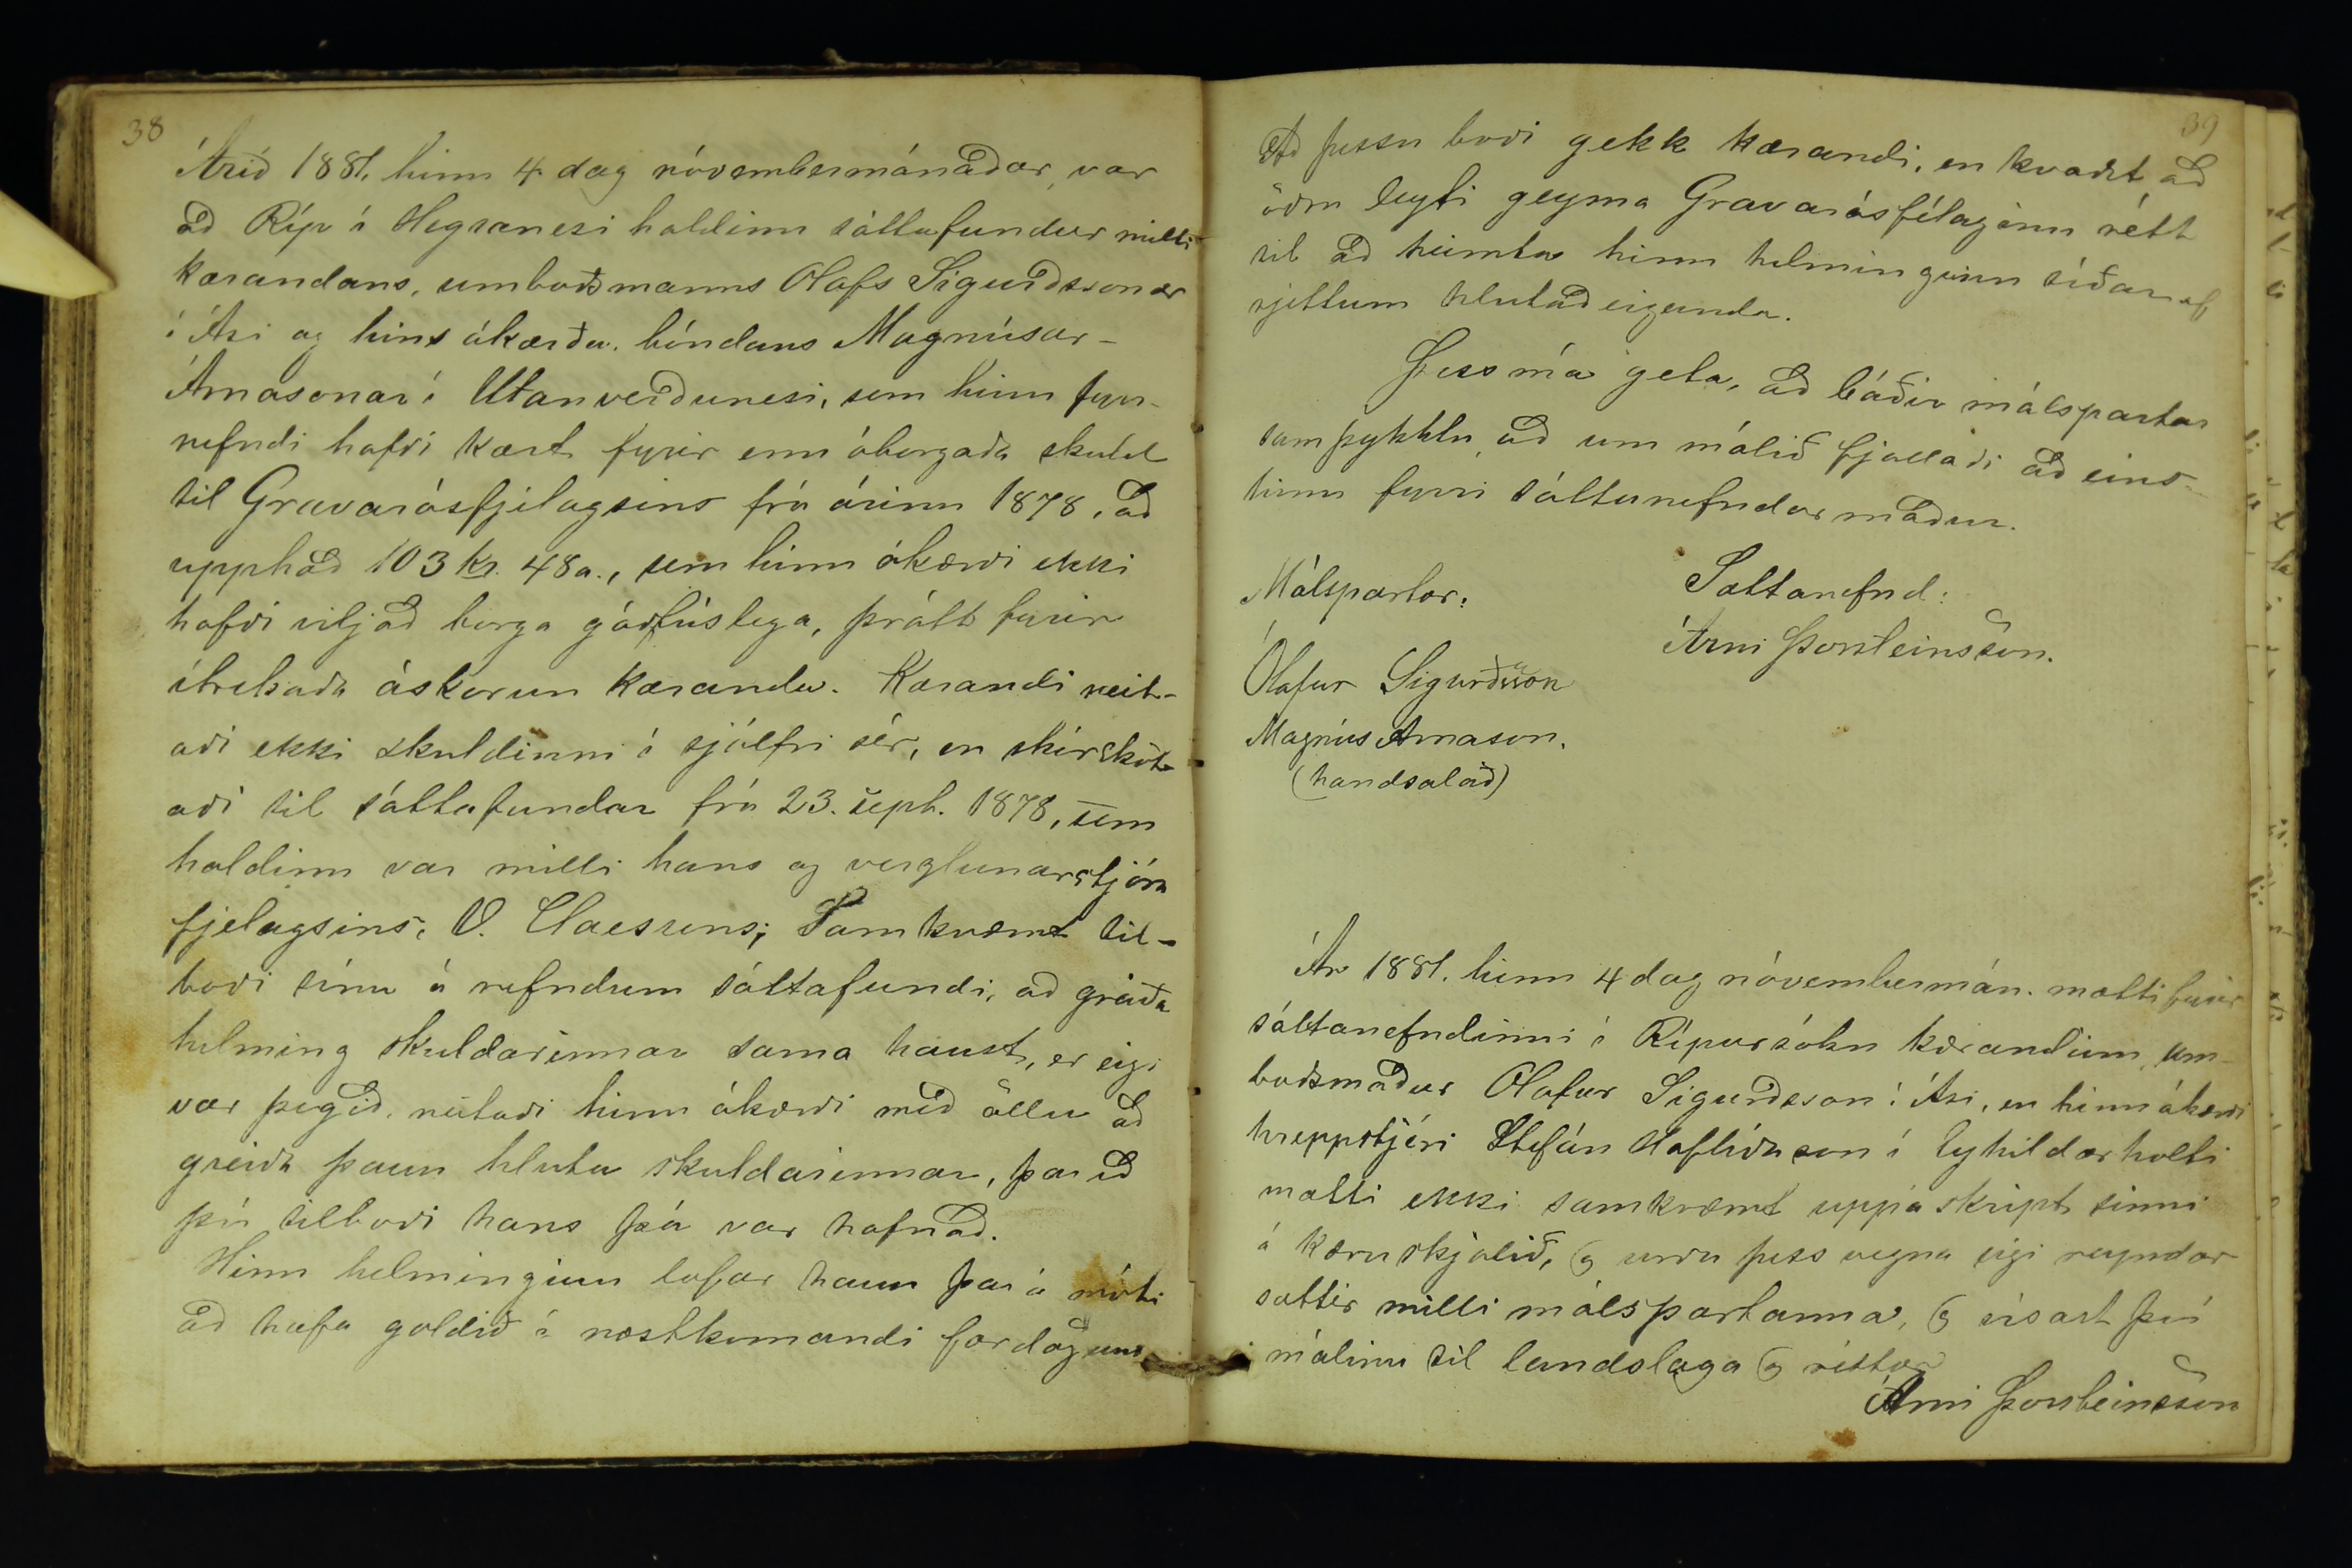 38
Árið 1881, hinn 4 dag nóvembermánaðar, var
að Ríp í Hegranesi haldinn sáttafundur milli
kærandans, umboðsmanns Olafs Sigurðssonar
í Ási og hins ákærða, bóndans Magnúsar
Árnasonar í Utanverðunesi, sem hinn fyrr-
nefndi hafði kært fyrir enn óborgaða skuld
til Gravarósfjelagsins frá árinu 1878, að
upphæð 103 kr. 48 a., sem hinn ákærði ekki
hafði viljað borga góðfúslega, þrátt fyrir
ítrekaða áskorun kæranda. Kærandi neit-
aði ekki skuldinni í sjálfri sér, en skírskot-
aði til sáttafundar frá 23. sept. 1878, sem
haldinn var milli hans og verzlunarstjóra
fjelagsins, V. Claessens; Samkvæmt til-
boði sínu á nefndum sáttafundi, að greiða
helming skuldarinnar sama haust, er eigi
var þegið, neitaði hinn ákærði með öllu að
greiða þann hluta skuldarinnar, þar eð
því tilboði hans þá var hafnað.
Hinn helminginn lofar hann þar á móti
að hafa goldið í næstkomandi fardögum.
39
Að þessu boði gekk kærandi, en kvaðst að
öðru leyti geyma Gravarósfélaginu rétt
til að heimta hinn helminginn síðar af
rjettum hlutaðeiganda.
Þess má geta, að báðir málspartar
samþykktu, að um málið fjallaði að eins
hinn fyrri sáttanefndarmaður.
Málspartar: Sáttanefnd:
Árni Þorsteinsson.
Ólafur Sigurðsson
Magnús Árnason.
(handsalað)
Ár 1881. hinn 4 dag nóvembermán. mætti fyrir
sáttanefndinni í Rípursókn kærandinn, um-
boðsmaður Olafur Sigurðsson í Ási, en hinn ákærði
hreppstjóri Stefán Hafliðason í Eyhildarholti
mætti ekki samkvæmt uppáskript sinni
á kæruskjalið, og urðu þess vegna eigi reyndar
sættir milli málspartanna, og vísast því
málinu til landslaga og réttar
Árni Þorsteinsson